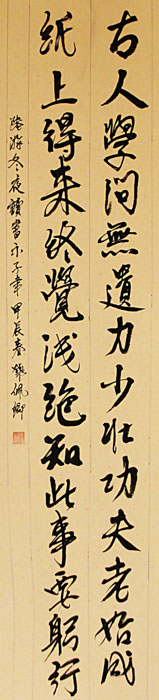 古人學問無遺力少壯功夫老始成
紙上得来终覺浅絶知此事要躬行
陸游冬夜讀書示子聿甲辰春